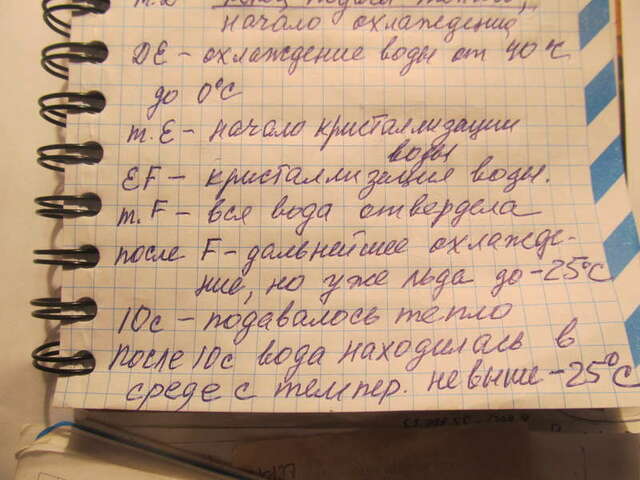 т.D конец подачи тепла,
начало охлаждения
DE – охлаждение воды от 40°С
до 0°С
т.Е – начало кристаллизации
воды
EF – кристаллизация воды.
т.F – вся вода отвердела
после F – дальнейшее охлажде-
ние, но уже льда до -25°С
10с – подавалось тепло
После 10с вода находилась в
среде с темпер. не выше -25°С